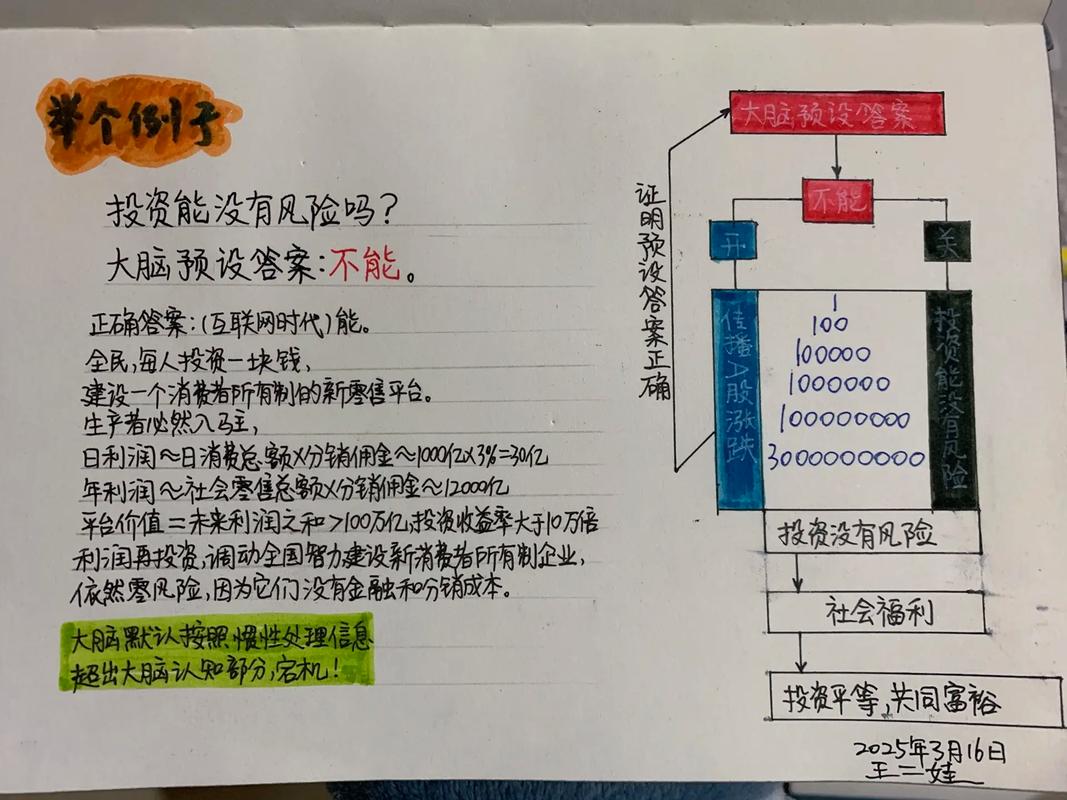 举个例子
投资能没有风险吗?
大脑预设答案:不能。
正确答案:(互联网时代)能。
全民,每人投资一块钱,
建设一个消费者所有制的新零售平台。
生产者必然入驻,
日利润≈日消费总额×分销佣金≈1000亿×3%=30亿
年利润≈社会零售总额×分销佣金≈12000亿
平台价值=未来利润之和>100万亿,投资收益率大于10万倍
利润再投资,调动全国智力建设新消费者所有制企业,
依然零风险,因为它们没有金融和分销成本。
大脑默认按照惯性处理信息
超出大脑认知部分,宕机!
大脑预设答案
不能
开
关
证明预设答案正确
传播A股涨跌
1
100
100000
1000000
100000000
3000000000
投资能没有风险
投资没有风险
社会福利
投资平等,共同富裕
2025年3月16日
王二娃